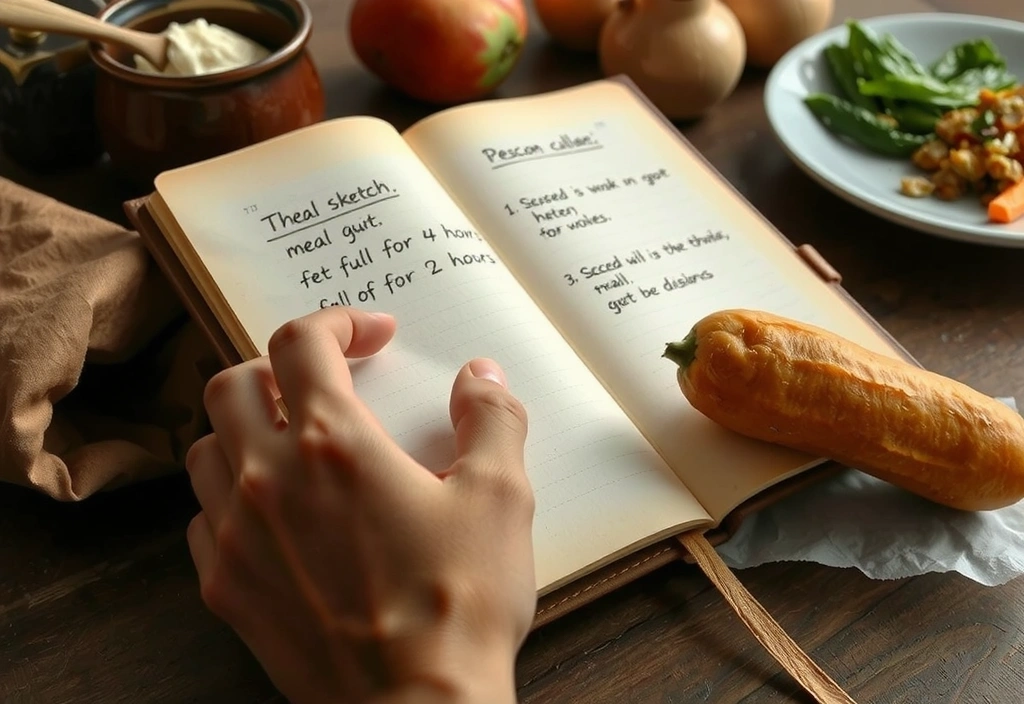 Theal sketch.
meal guit.
fet full for 4 hors
fall of for 2 hours
Pescon cullae:
1. Scesed is wook in goot
heten
for wolkes.
3. Scced will is the thvile,
rxall.
goot be disions